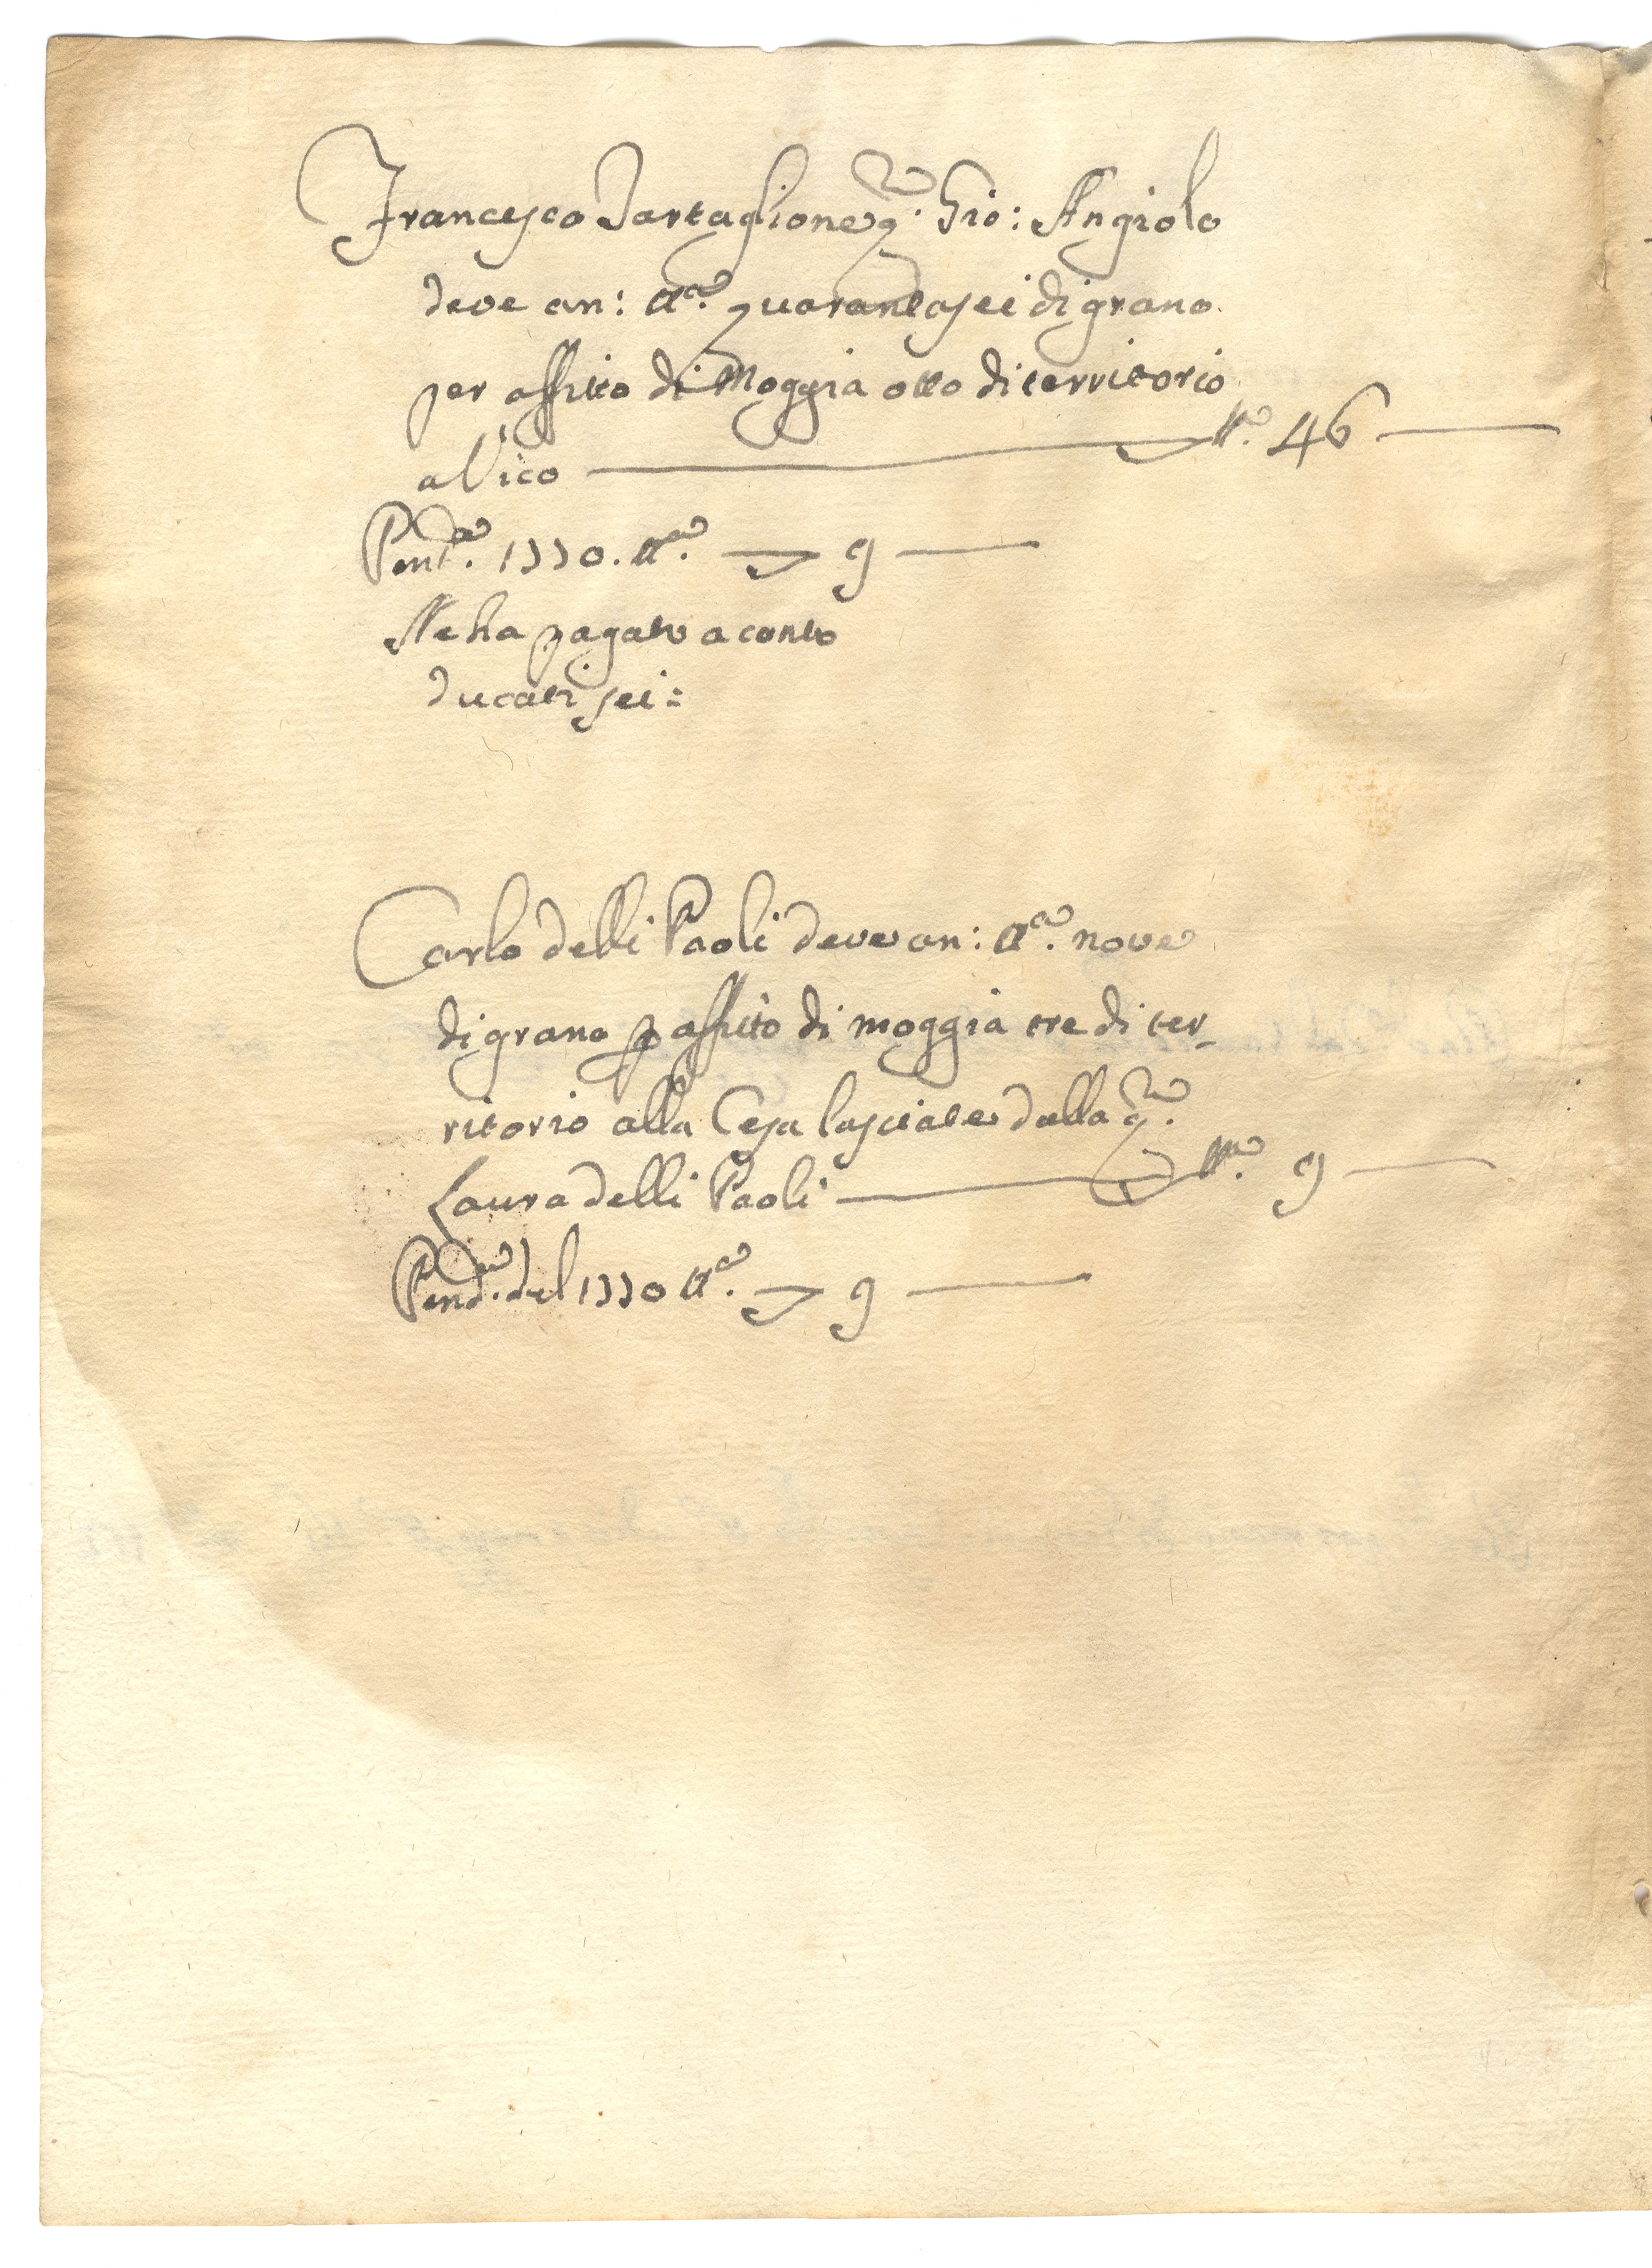 Francesco Tartaglione q.m Gio: Angiolo
deve an: tt.a quarantasei di grano
per affitto di Moggia otto di territorio
a Vico tt.a 46
Pend.a 1770. tt.a 9
Ne ha pagato a conto
ducati sei:
Carlo delli Paoli deve an: tt.a nove
di grano p affitto di moggia tre di ter-
ritorio alla Cesa lasciate dalla q.m
Laura delli Paoli tt.a 9
Pend.a del 1770 tt.a 9